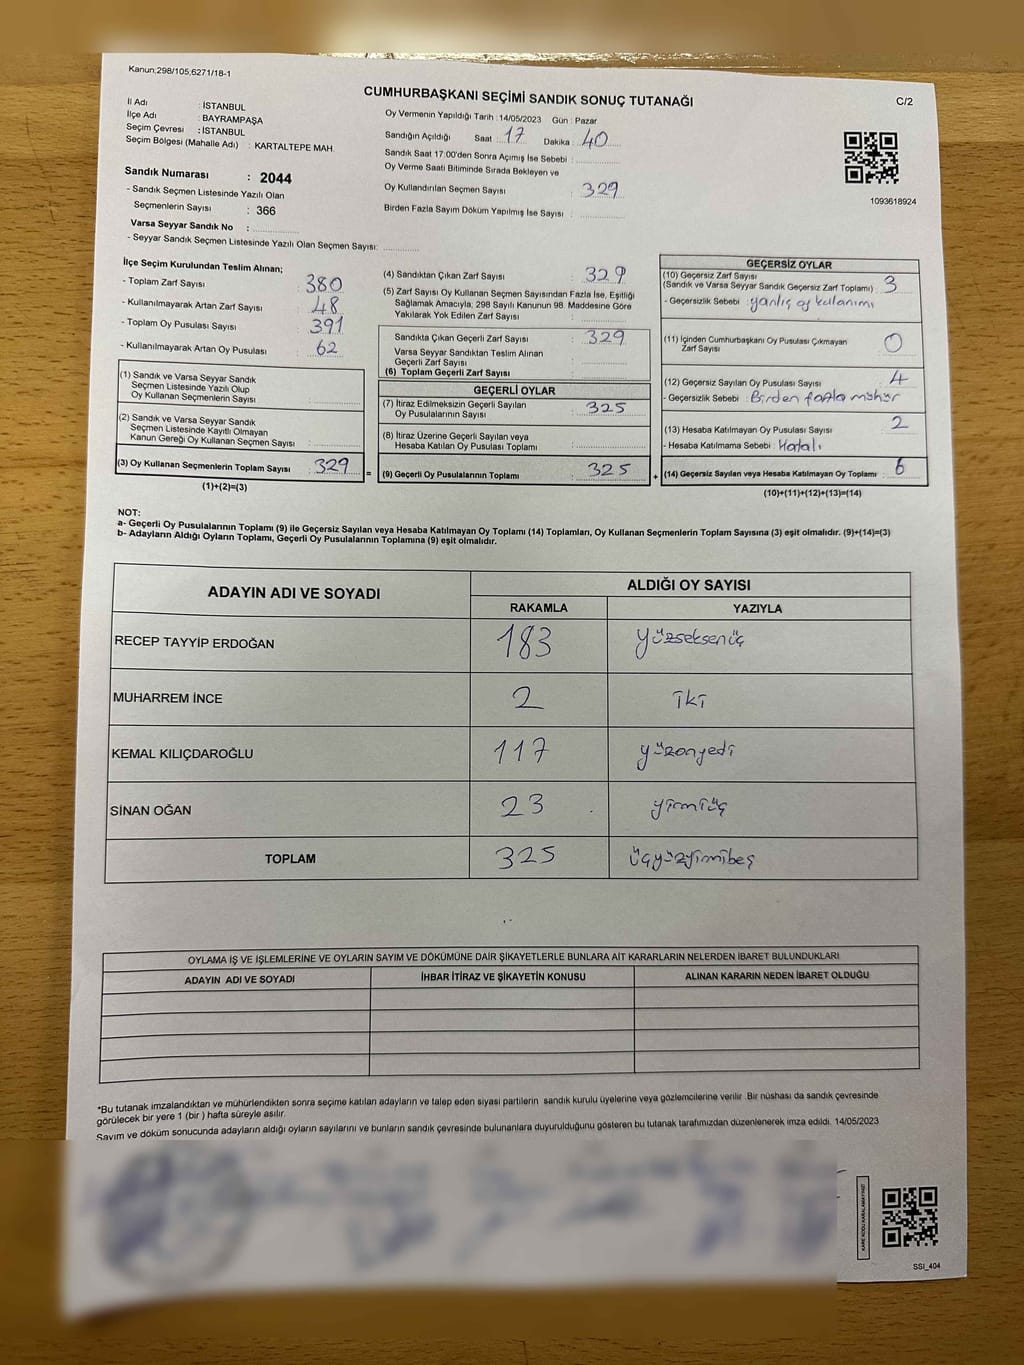 Kanun,298/105,6271/18-1
CUMHURBAŞKANI SEÇİMİ SANDIK SONUÇ TUTANAĞI
C/2
İl Adı : İSTANBUL
İlçe Adı : BAYRAMPAŞA
Seçim Çevresi : İSTANBUL
Seçim Bölgesi (Mahalle Adı) : KARTALTEPE MAH.
Sandık Numarası : 2044
- Sandık Seçmen Listesinde Yazılı Olan
Seçmenlerin Sayısı : 366
Varsa Seyyar Sandık No :
- Seyyar Sandık Seçmen Listesinde Yazılı Olan Seçmen Sayısı:
Oy Vermenin Yapıldığı Tarih : 14/05/2023 Gün : Pazar
Sandığın Açıldığı Saat : 17 Dakika : 40
Sandık Saat 17:00'den Sonra Açımış İse Sebebi :
Oy Verme Saati Bitiminde Sırada Bekleyen ve
Oy Kullandırılan Seçmen Sayısı : 329
Birden Fazla Sayım Döküm Yapılmış İse Sayısı :
1093618924
İlçe Seçim Kurulundan Teslim Alınan;
- Toplam Zarf Sayısı : 380
- Kullanılmayarak Artan Zarf Sayısı : 48
- Toplam Oy Pusulası Sayısı : 391
- Kullanılmayarak Artan Oy Pusulası : 62
(1) Sandık ve Varsa Seyyar Sandık
Seçmen Listesinde Yazılı Olup
Oy Kullanan Seçmenlerin Sayısı :
(2) Sandık ve Varsa Seyyar Sandık
Seçmen Listesinde Kayıtlı Olmayan
Kanun Gereği Oy Kullanan Seçmen Sayısı :
(3) Oy Kullanan Seçmenlerin Toplam Sayısı : 329
(1)+(2)=(3)
(4) Sandıktan Çıkan Zarf Sayısı : 329
(5) Zarf Sayısı Oy Kullanan Seçmen Sayısından Fazla İse, Eşitliği
Sağlamak Amacıyla, 298 Sayılı Kanunun 98. Maddesine Göre
Yakılarak Yok Edilen Zarf Sayısı :
Sandıkta Çıkan Geçerli Zarf Sayısı : 329
Varsa Seyyar Sandıktan Teslim Alınan
Geçerli Zarf Sayısı :
(6) Toplam Geçerli Zarf Sayısı :
GEÇERLİ OYLAR
(7) İtiraz Edilmeksizin Geçerli Sayılan
Oy Pusulalarının Sayısı : 325
(8) İtiraz Üzerine Geçerli Sayılan veya
Hesaba Katılan Oy Pusulası Toplamı :
= (9) Geçerli Oy Pusulalarının Toplamı : 325 +
GEÇERSİZ OYLAR
(10) Geçersiz Zarf Sayısı
(Sandık ve Varsa Seyyar Sandık Geçersiz Zarf Toplamı) : 3
- Geçersizlik Sebebi : yanlış oy kullanımı
(11) İçinden Cumhurbaşkanı Oy Pusulası Çıkmayan
Zarf Sayısı : 0
(12) Geçersiz Sayılan Oy Pusulası Sayısı : 4
- Geçersizlik Sebebi : Birden fazla mühür
(13) Hesaba Katılmayan Oy Pusulası Sayısı : 2
- Hesaba Katılmama Sebebi : Hatalı
(14) Geçersiz Sayılan veya Hesaba Katılmayan Oy Toplamı : 6
(10)+(11)+(12)+(13)=(14)
NOT:
a- Geçerli Oy Pusulalarının Toplamı (9) ile Geçersiz Sayılan veya Hesaba Katılmayan Oy Toplamı (14) Toplamları, Oy Kullanan Seçmenlerin Toplam Sayısına (3) eşit olmalıdır. (9)+(14)=(3)
b- Adayların Aldığı Oyların Toplamı, Geçerli Oy Pusulalarının Toplamına (9) eşit olmalıdır.
ADAYIN ADI VE SOYADI ALDIĞI OY SAYISI
RAKAMLA YAZIYLA
RECEP TAYYİP ERDOĞAN 183 yüzseksenüç
MUHARREM İNCE 2 iki
KEMAL KILIÇDAROĞLU 117 yüzonyedi
SİNAN OĞAN 23 yirmiüç
TOPLAM 325 üçyüzyirmibeş
OYLAMA İŞ VE İŞLEMLERİNE VE OYLARIN SAYIM VE DÖKÜMÜNE DAİR ŞİKAYETLERLE BUNLARA AİT KARARLARIN NELERDEN İBARET BULUNDUKLARI
ADAYIN ADI VE SOYADI İHBAR İTİRAZ VE ŞİKAYETİN KONUSU ALINAN KARARIN NEDEN İBARET OLDUĞU
*Bu tutanak imzalandıktan ve mühürlendikten sonra seçime katılan adayların ve talep eden siyasi partilerin sandık kurulu üyelerine veya gözlemcilerine verilir. Bir nüshası da sandık çevresinde
görülecek bir yere 1 (bir ) hafta süreyle asılır.
Sayım ve döküm sonucunda adayların aldığı oyların sayılarını ve bunların sandık çevresinde bulunanlara duyurulduğunu gösteren bu tutanak tarafımızdan düzenlenerek imza edildi. 14/05/2023
KARE KODU KARALAMAYINIZ!
SSI_404